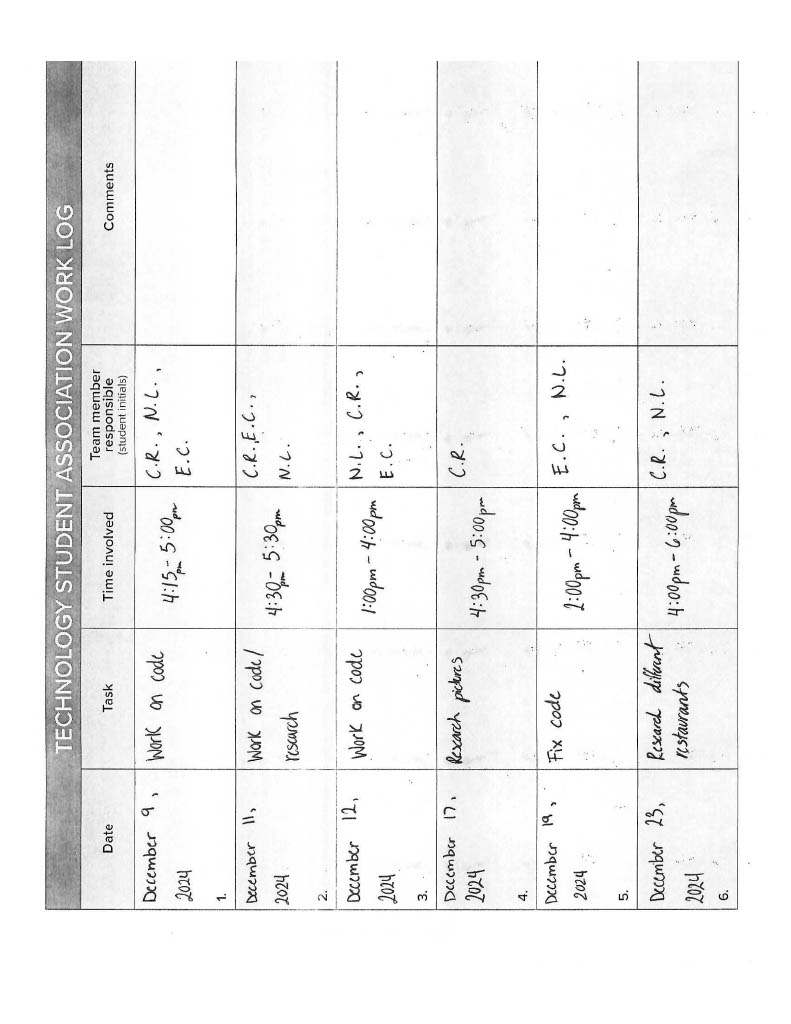 TECHNOLOGY STUDENT ASSOCIATION WORK LOG
Date
Task
Time involved
Team member
responsible
(student initials)
Comments
December 9,
2024
1.
Work on code
4:15pm - 5:00pm
C.R., N.L.,
E.C.
December 11,
2024
2.
Work on code/
research
4:30pm - 5:30pm
C.R., E.C.,
N.L.
December 12,
2024
3.
Work on code
1:00pm - 4:00pm
N.L., C.R.,
E.C.
December 17,
2024
4.
Research pictures
4:30pm - 5:00pm
C.R.
December 19,
2024
5.
Fix code
2:00pm - 4:00pm
E.C., N.L.
December 23,
2024
6.
Research different
restaurants
4:00pm - 6:00pm
C.R., N.L.